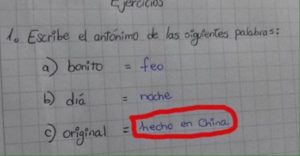 Ejercicios
1. Escribe el antónimo de las siguientes palabras:
a) bonito = feo
b) diá = noche
c) original = hecho en China